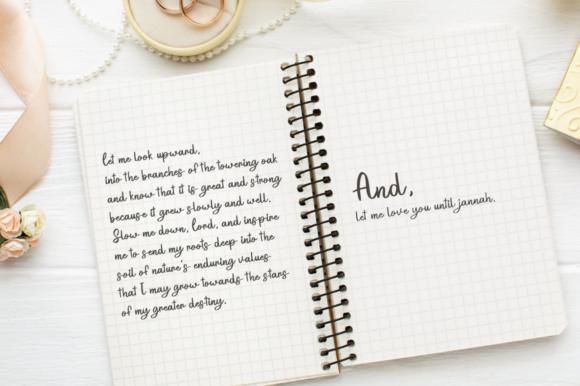 let me look upward,
into the branches of the towering oak
and know that it is great and strong
because it grew slowly and well.
Slow me down, lord, and inspire
me to send my roots deep into the
soil of nature's enduring values
that I may grow towards the stars
of my greater destiny.
And,
let me love you until jannah.